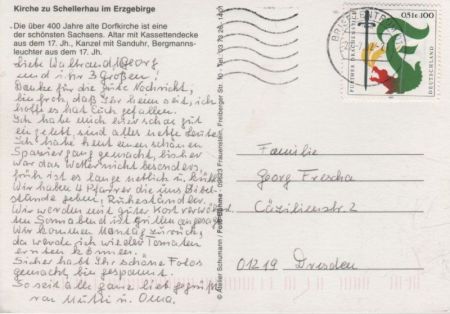 Kirche zu Schellerhau im Erzgebirge
„Die über 400 Jahre alte Dorfkirche ist eine
der schönsten Sachsens. Altar mit Kassettendecke
aus dem 17. Jh., Kanzel mit Sanduhr, Bergmanns-
leuchter aus dem 17. Jh.
Liebe Waltraud, Georg
und ihr 3 Großen!
Danke für die gute Nachricht,
bin froh, daß Ihr heim seit, ich
hoffe es hat Euch gefallen.
Ich habe mich hier schon gut
ein gelebt, sind alles nette Leute.
Ich habe heut einen schönen
Spaziergang gemacht, bisher
war das Wetter nicht besonders,
früh ist es lange neblich u. kühl.
Wir haben 4 Pfarrer die uns Bibel-
stunde geben, Ruheständler.
Wir werden mit guter Kost verwöhnt
Sonnabend ist Grillen angesagt
Wir kommen Montag zurück,
da werde ich wieder Tomaten
ernten können.
Sicher habt Ihr schöne Fotos
gemacht bin gespannt.
So seit alle ganz lieb gegrüßt
von Mutti u. Oma.
© Atelier Schumann / Foto-Böhme · 09623 Frauenstein, Freiberger Str. 10
BRIEFZENTRUM
0,51+100
FÜR DEN UMWELTSCHUTZ
DEUTSCHLAND
Familie
Georg Frescha
Cäzilienstr. 2
01219 Dresden